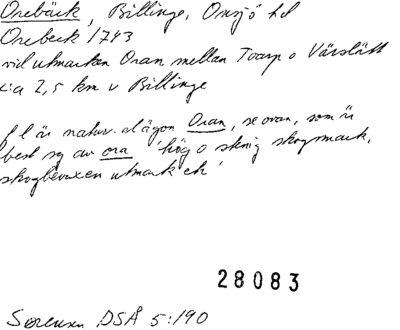 Orebäck, Billinge, Onsjö hd
Orebeck 1743
vid utmarken Oran mellan Toarp o Värslätt
c:a 2,5 km v Billinge
f l är natur. ägon Oran, se ovan, som är
best sg av ora 'hög o stenig skogsmark,
skogbevuxen utmark etc'
28083
Sörensen DSÅ 5:190